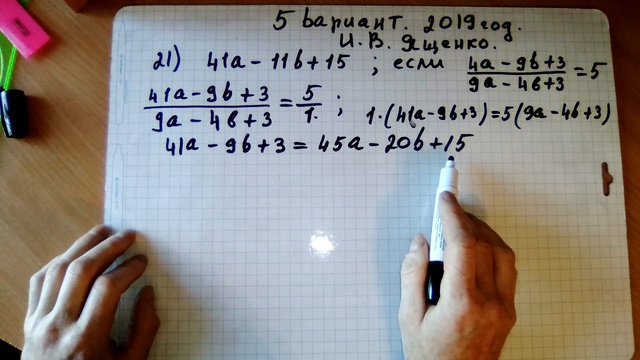 5 вариант. 2019 год.
И.В. Ященко.
21) 41a - 11b + 15 ; если (4a - 9b + 3)/(9a - 4b + 3) = 5
(41a - 9b + 3)/(9a - 4b + 3) = 5/1 ; 1·(41a - 9b + 3) = 5(9a - 4b + 3)
41a - 9b + 3 = 45a - 20b + 15